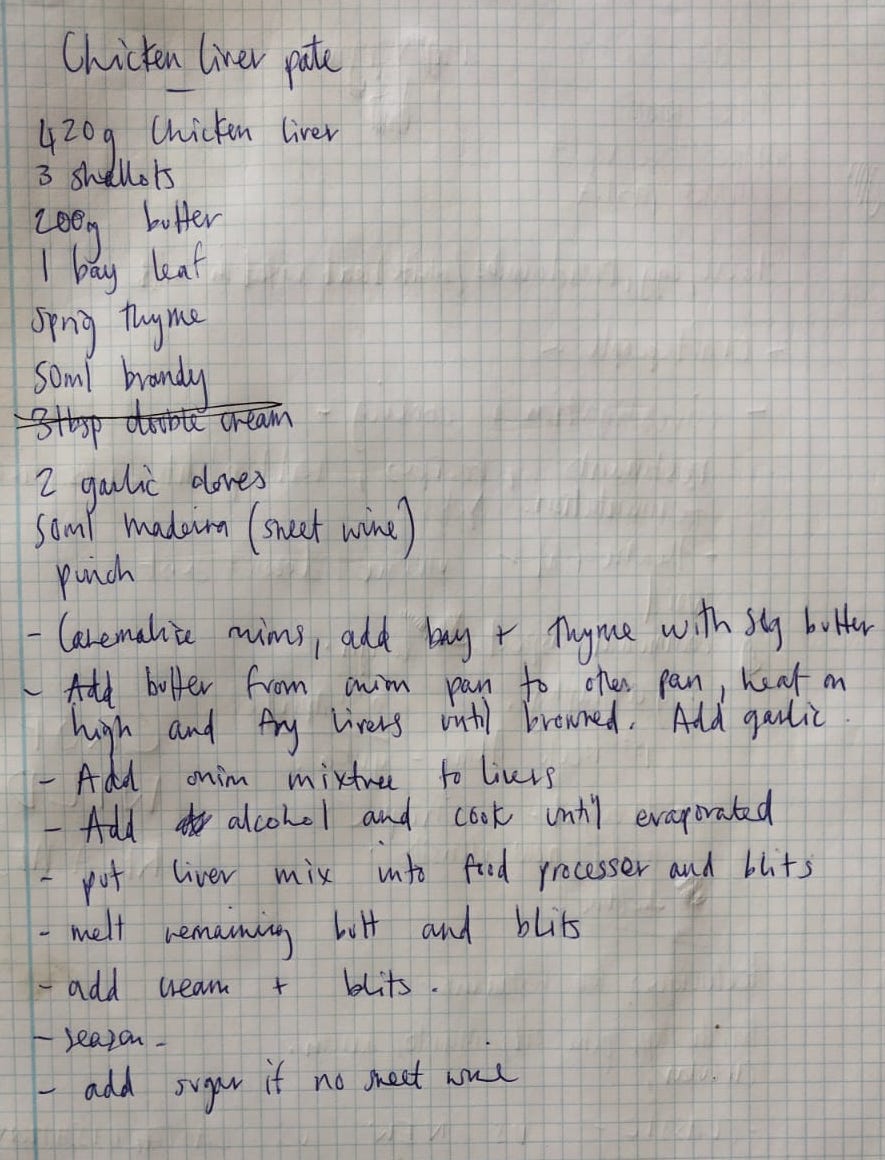 Chicken liver pate
420g Chicken liver
3 shallots
200g butter
1 bay leaf
sprig thyme
50ml brandy
3tbsp double cream
2 garlic cloves
50ml madeira (sweet wine)
pinch
- Caremalize onions, add bay + thyme with butter
- Add butter from onion pan to other pan, heat on
high and fry livers until browned. Add garlic.
- Add onion mixtree to livers
- Add alcohol and cook until evaporated
- put liver mix into food processer and blits
- melt remaining butt and blits
- add cream + blits.
- season -
- add sugar if no sweet wine